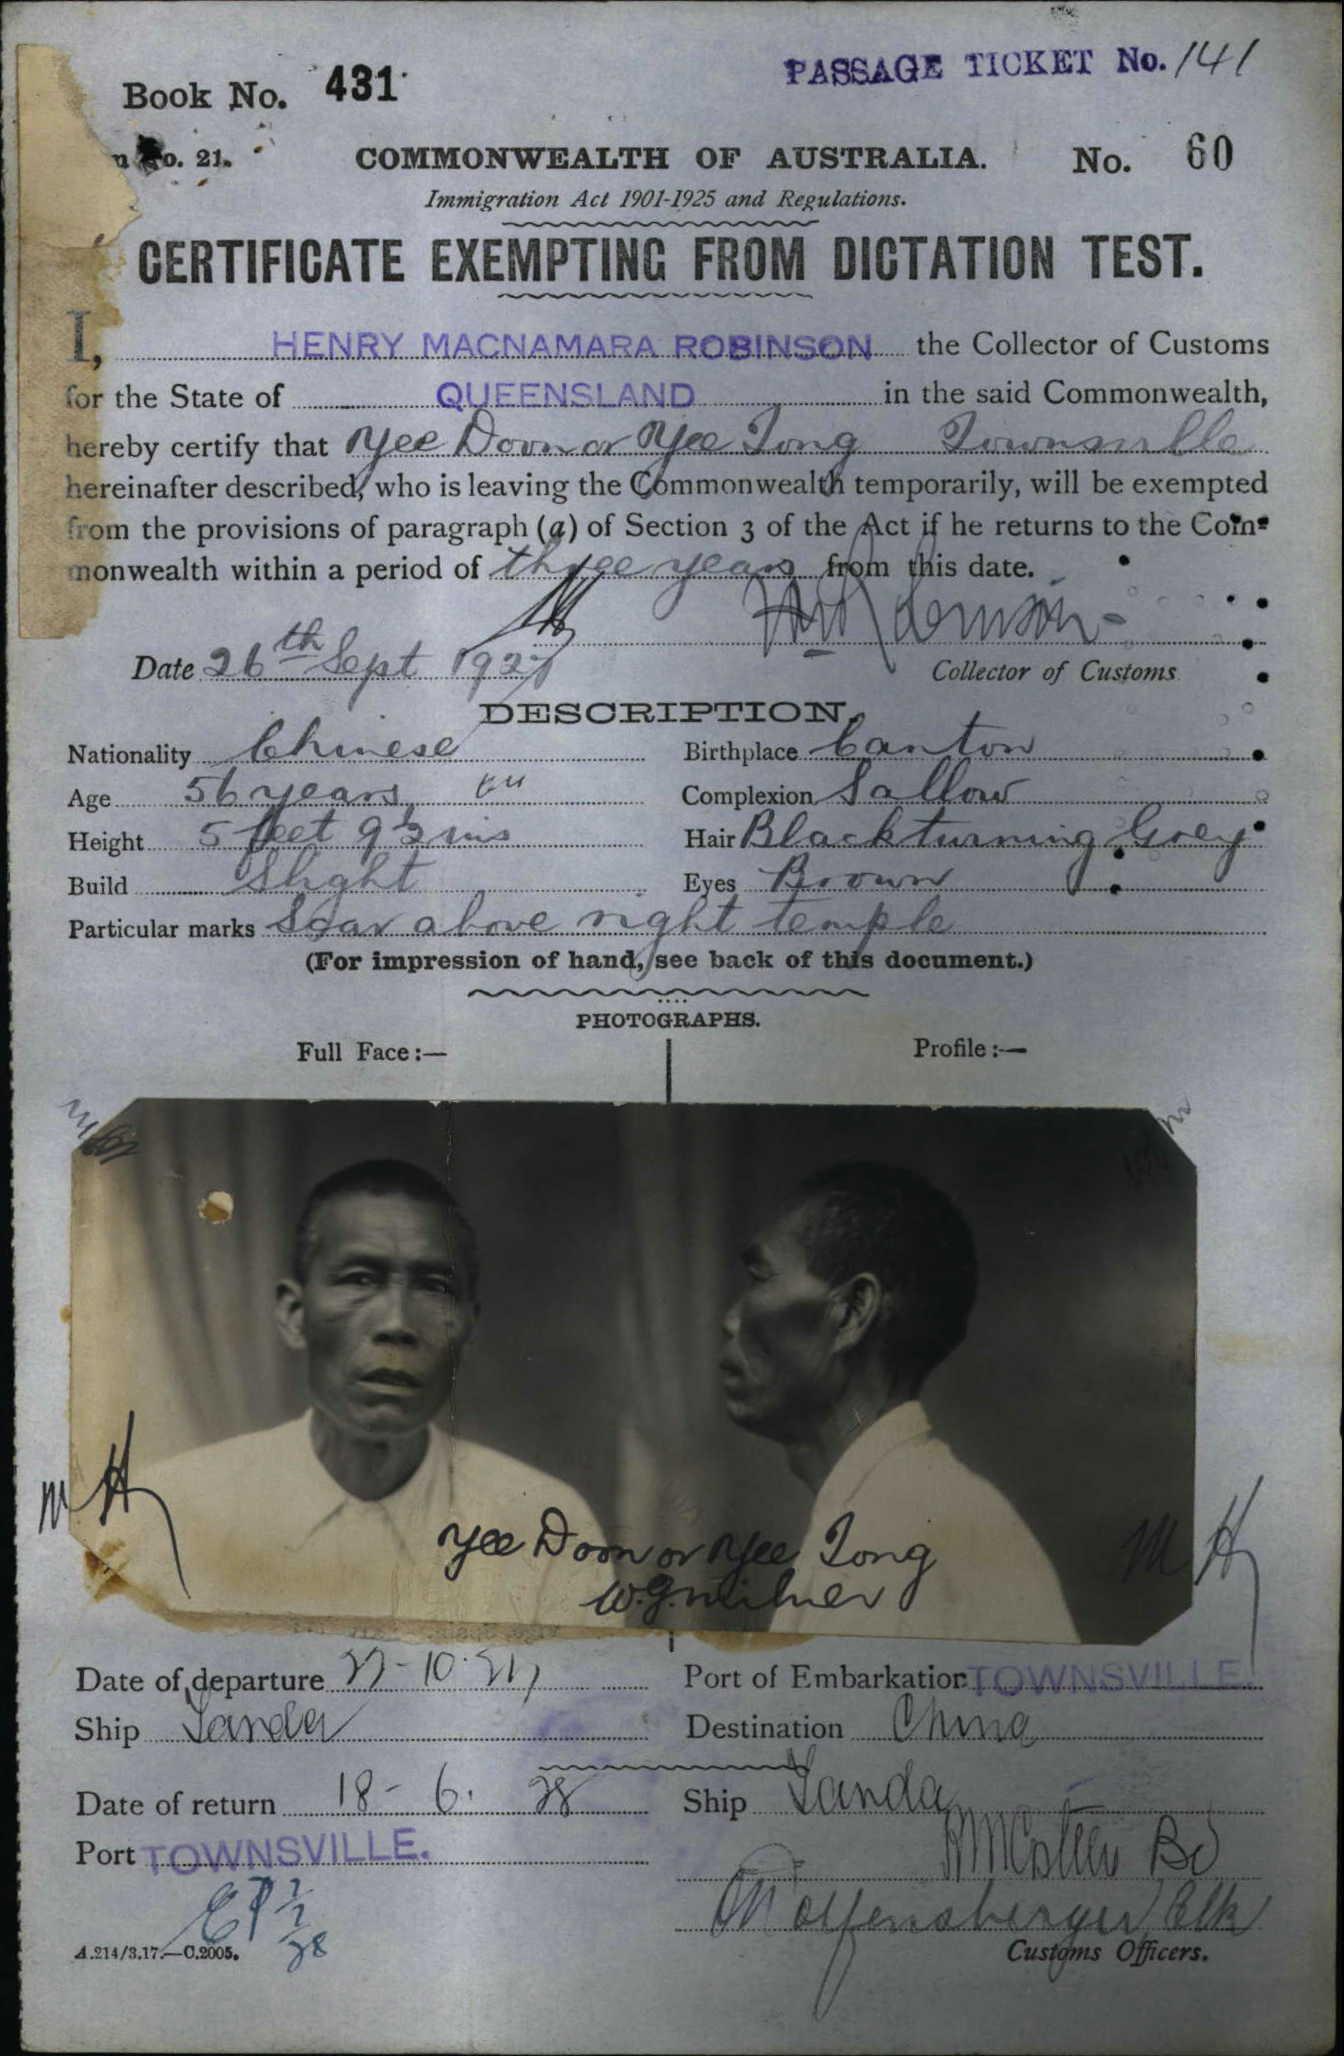 Book No. 431
PASSAGE TICKET No. 141
No. 21.
COMMONWEALTH OF AUSTRALIA.
No. 60
Immigration Act 1901-1925 and Regulations.
CERTIFICATE EXEMPTING FROM DICTATION TEST.
I, HENRY MACNAMARA ROBINSON the Collector of Customs
for the State of QUEENSLAND in the said Commonwealth,
hereby certify that Yee Doon or Yee Tong Townsville
hereinafter described, who is leaving the Commonwealth temporarily, will be exempted
from the provisions of paragraph (a) of Section 3 of the Act if he returns to the Com-
monwealth within a period of three years from this date.
Date 26th Sept 1927
Collector of Customs
DESCRIPTION.
Nationality Chinese
Birthplace Canton
Age 56 years
Complexion Sallow
Height 5 feet 9½ ins
Hair Black turning Grey
Build Slight
Eyes Brown
Particular marks Scar above right temple
(For impression of hand, see back of this document.)
PHOTOGRAPHS.
Full Face:—
Profile:—
MH
MH
Yee Doon or Yee Tong
W.G. Milner
Date of departure 27-10-27
Port of Embarkation TOWNSVILLE.
Ship Tanda
Destination China
Date of return 18-6.28
Ship Tanda
Port TOWNSVILLE.
A.214/3.17.—C.2005.
Customs Officers.